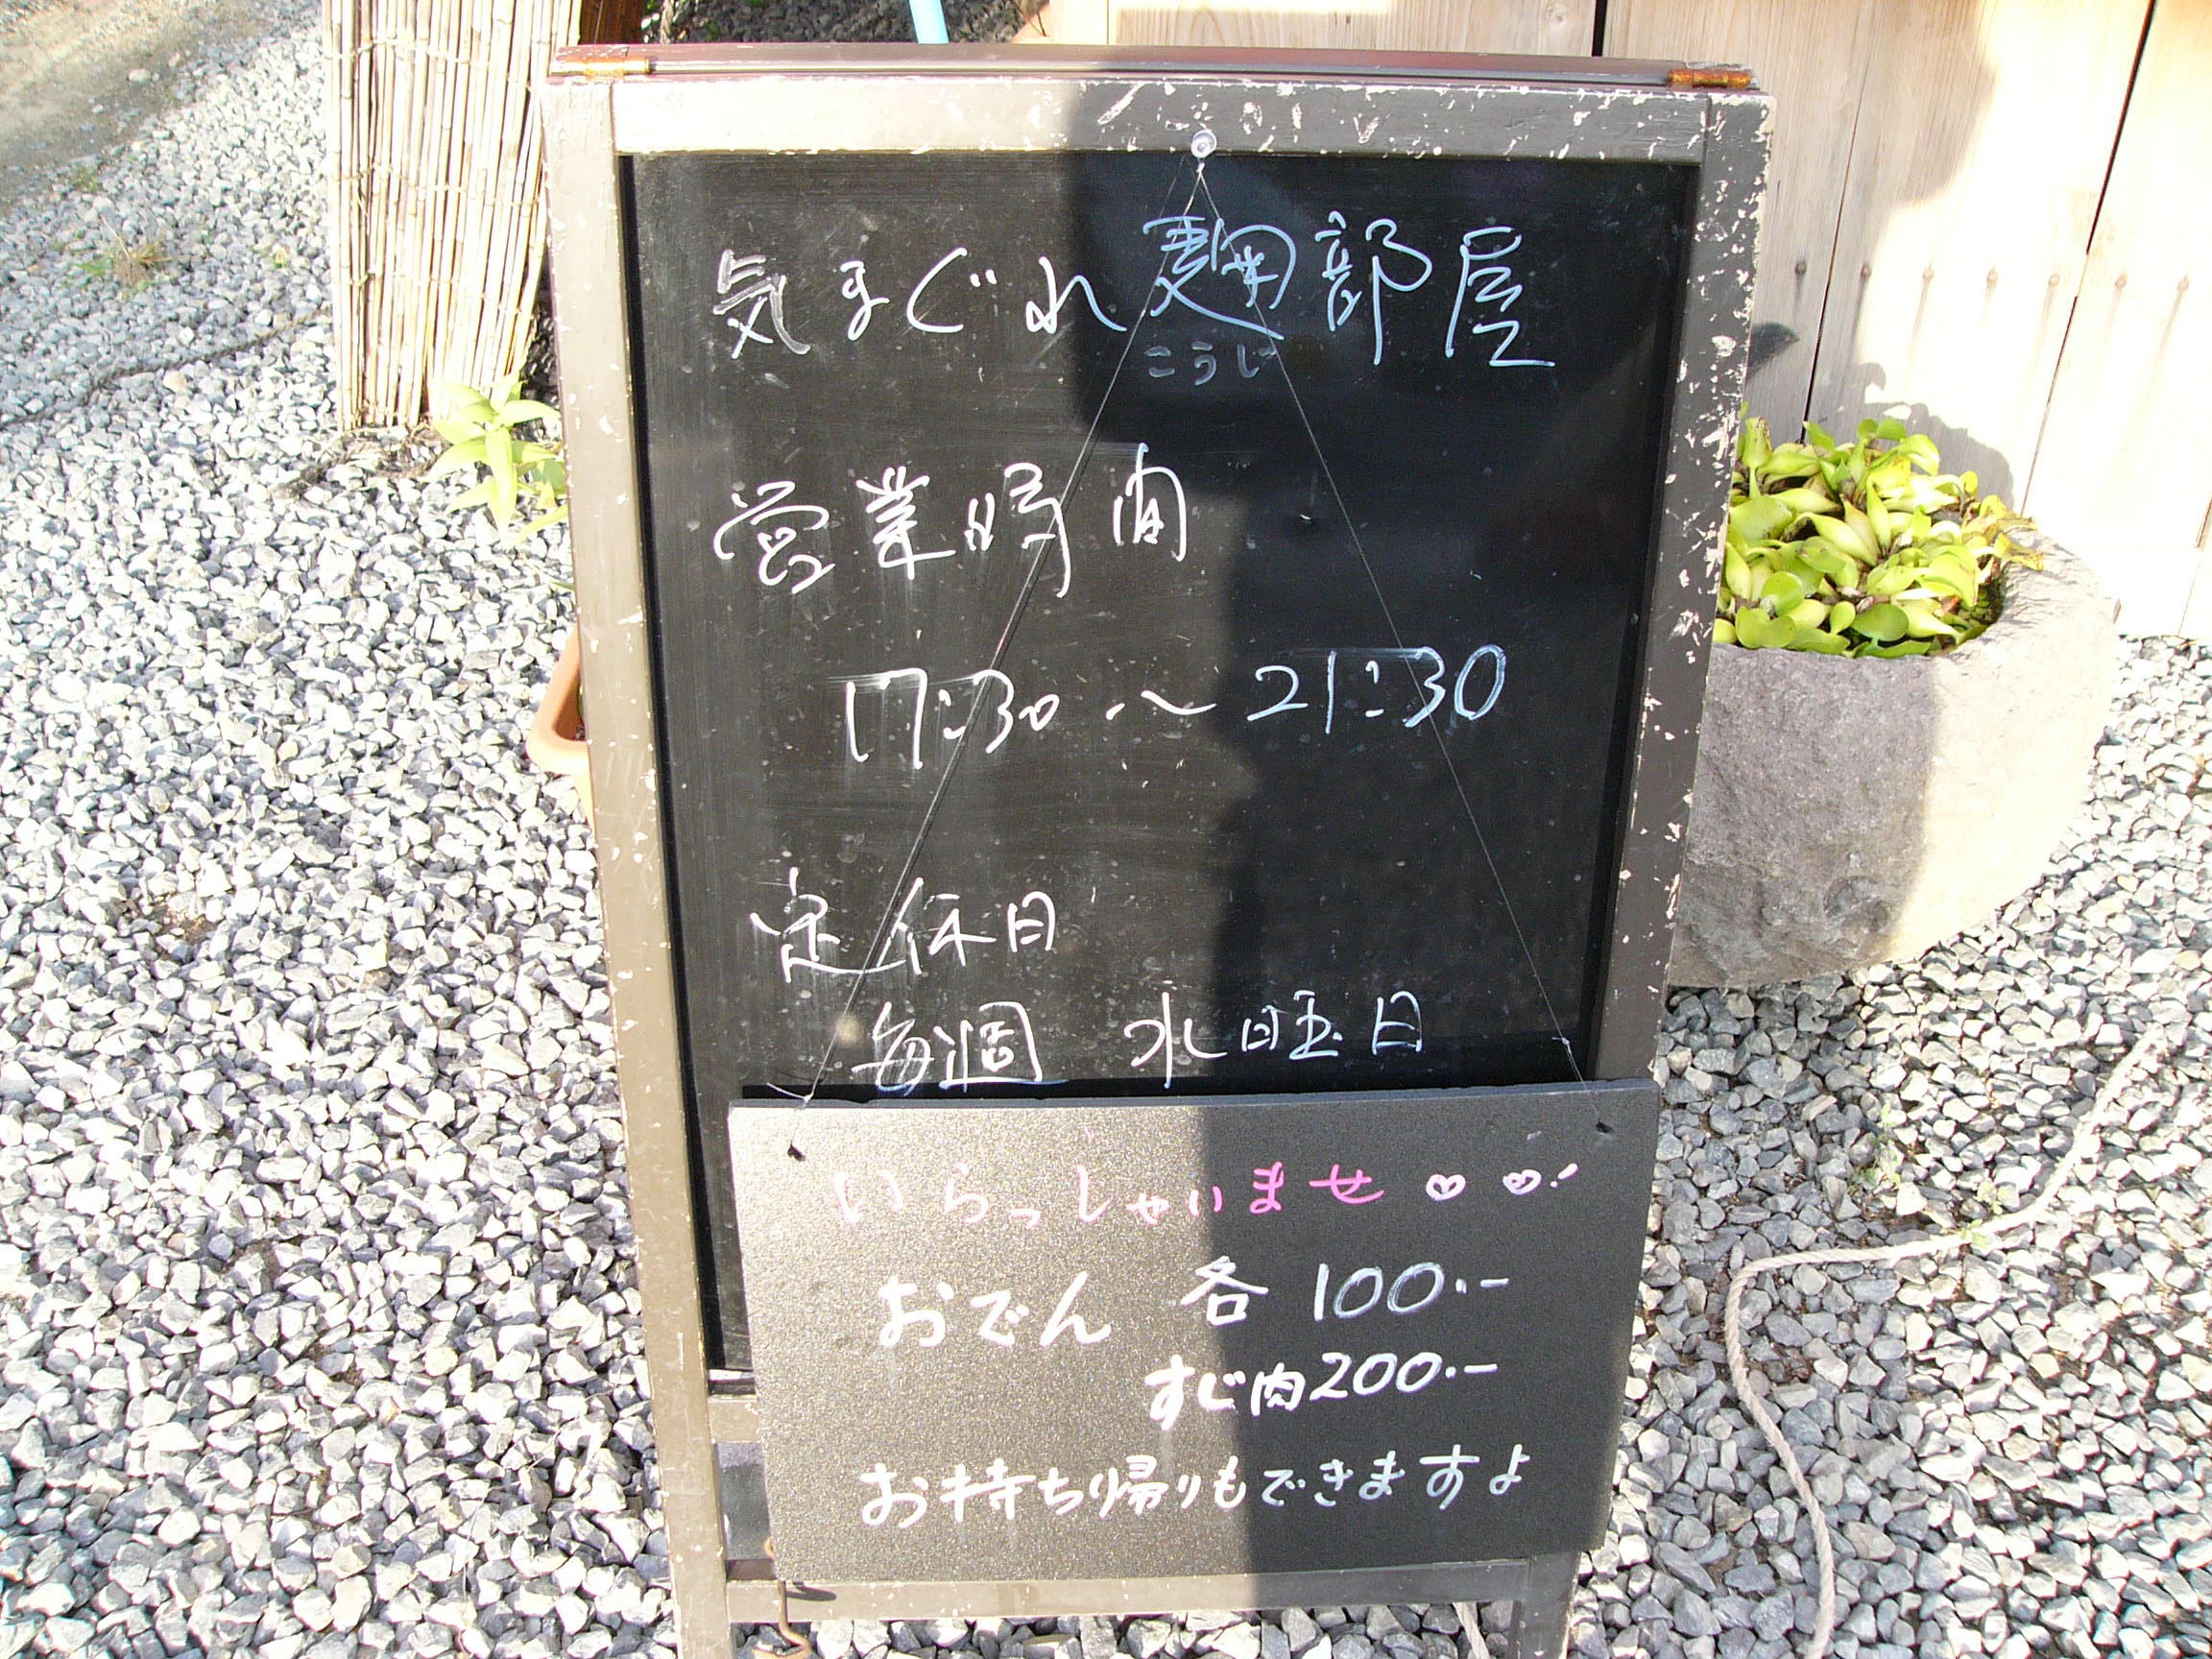 気まぐれ麹部屋
こうじ
営業時間
17:30〜21:30
定休日
毎週 水曜日
いらっしゃいませ♡♡!
おでん 各 100.-
すじ肉200.-
お持ち帰りもできますよ